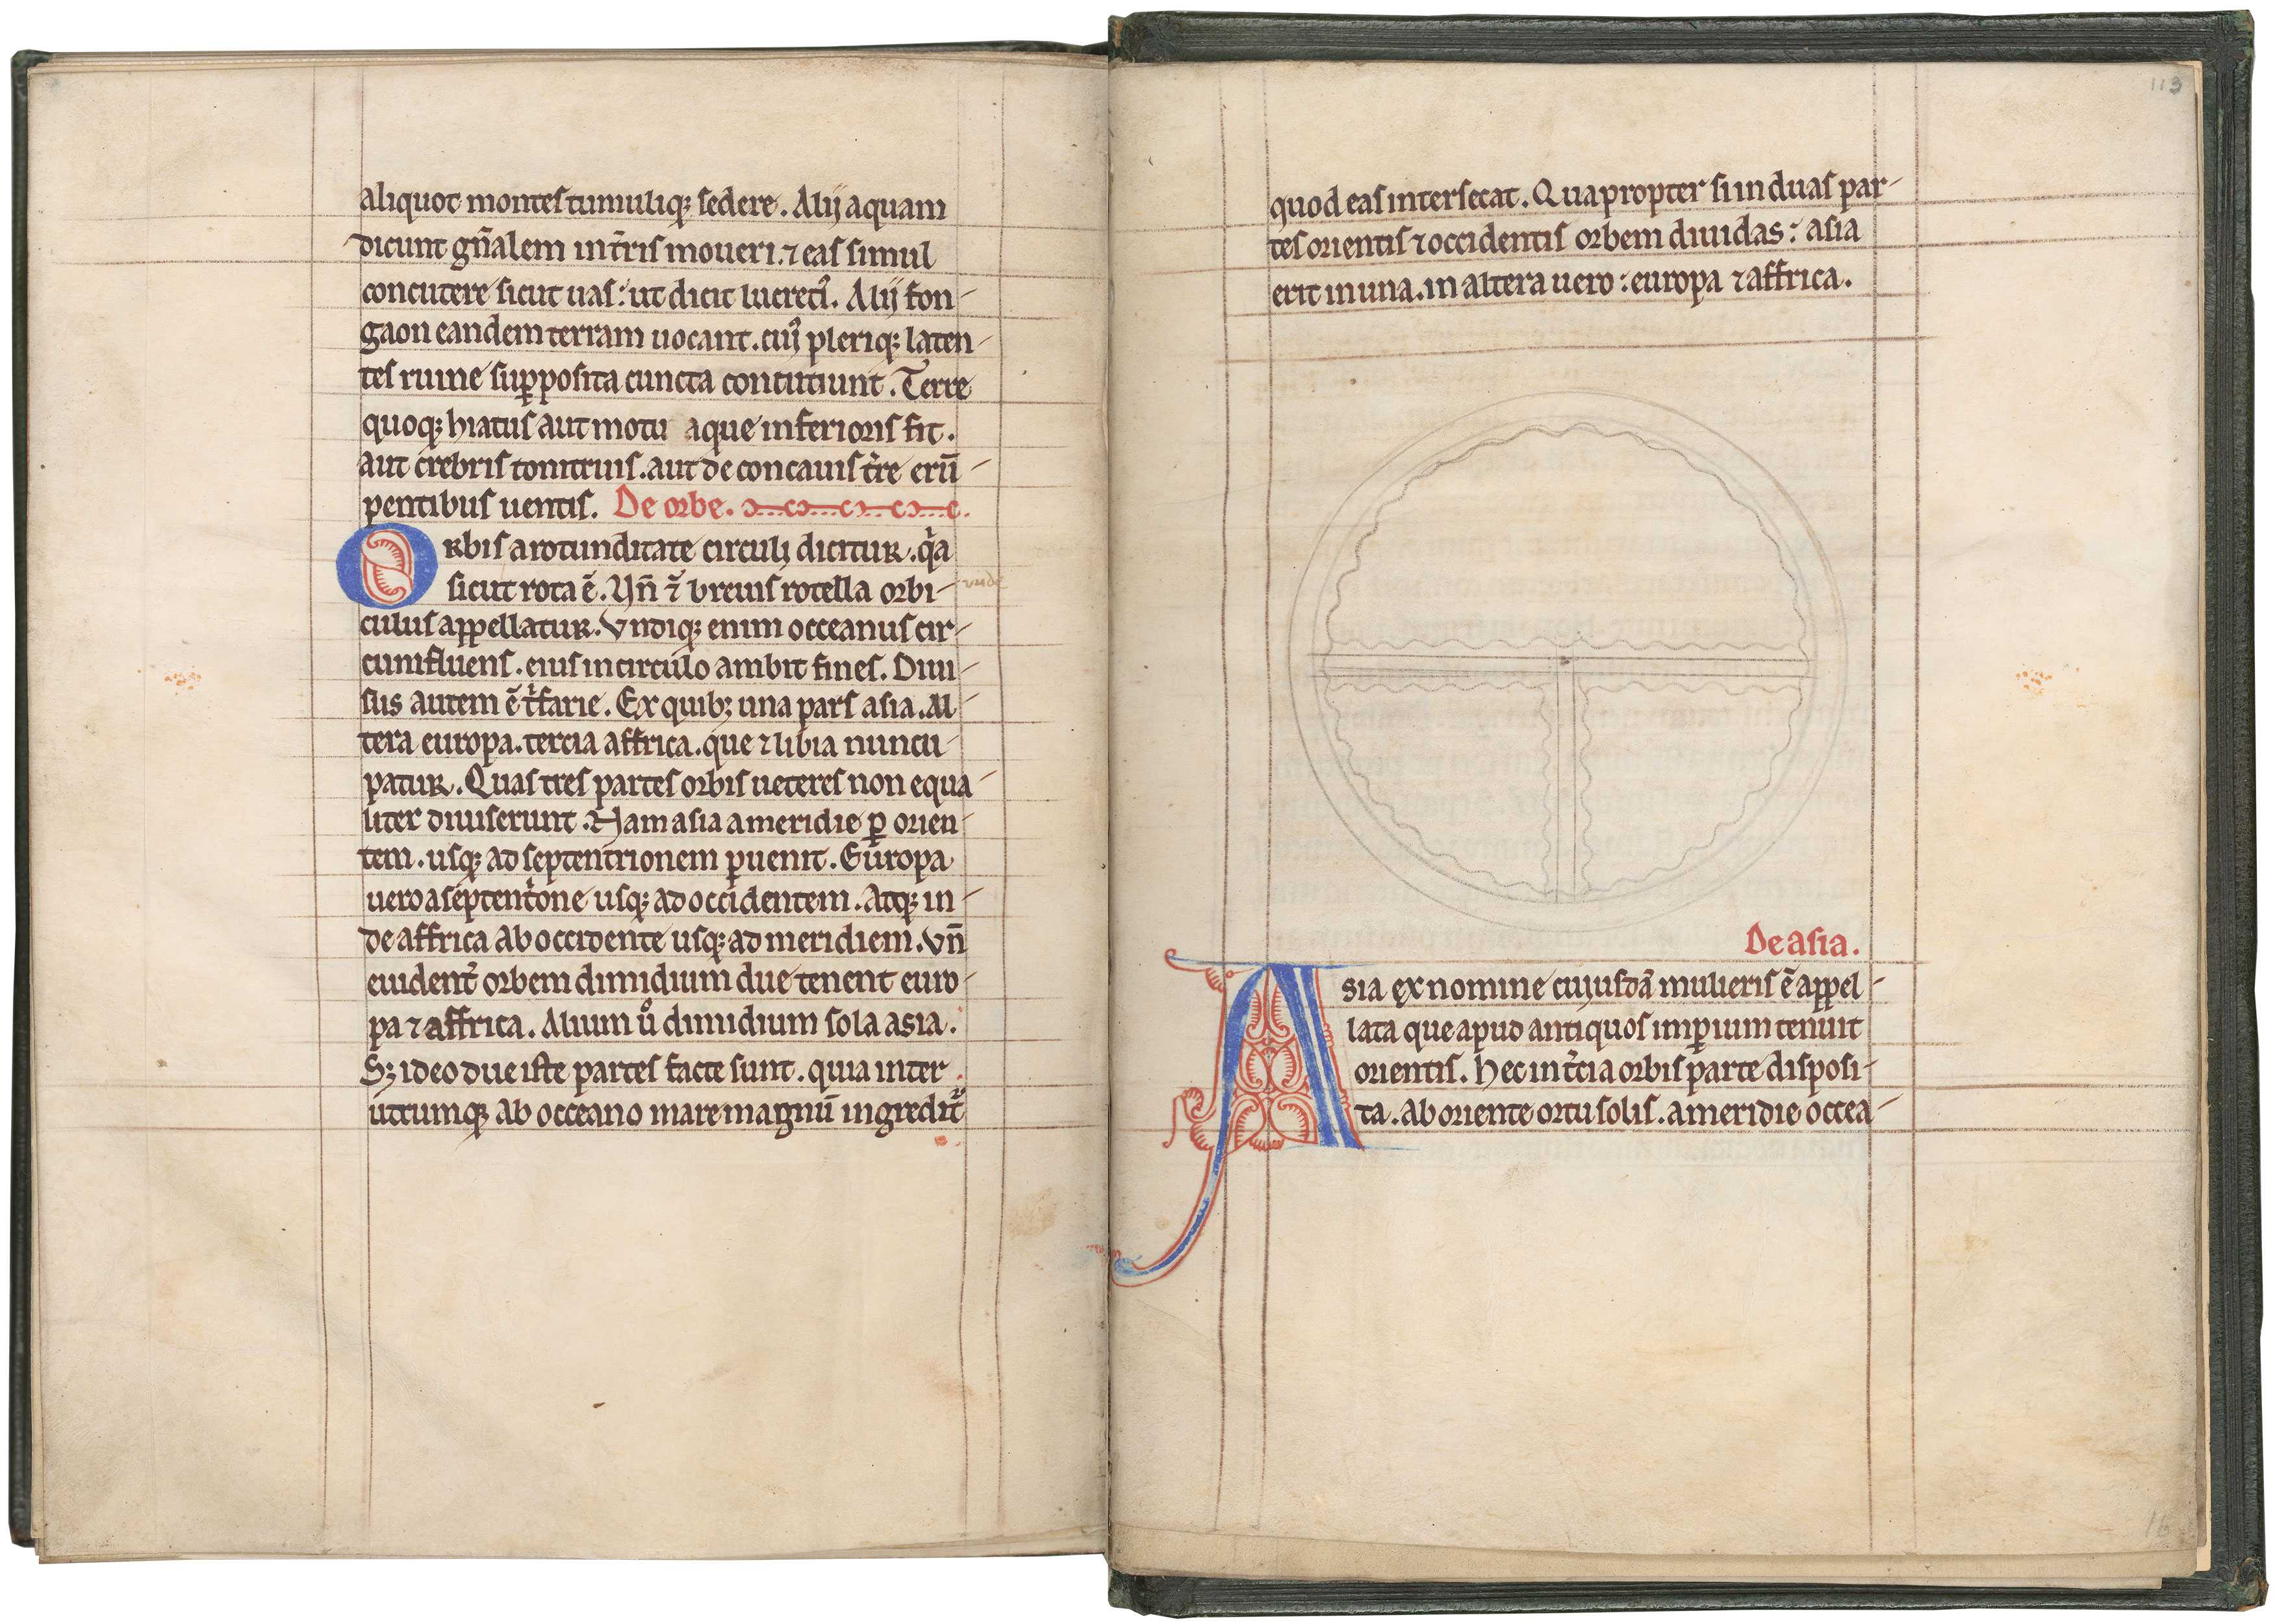 aliquot montes tumuliq; sedere. Alij aquam
dicunt gn̄alem in tr̄ris moueri. ⁊ eas simul
concutere sicut uas: ut dicit lucreti᷒. Alij fon-
gaon eandem terram uocant. cui᷒ pleriq; laten-
tes ruine suꝑposita cuncta concutiunt. Terre
quoq; hiatus aut motu aque inferioris fit.
aut crebris tonitruis. aut de concauis tr̄re erū-
pentibus uentis. De orbe.
Orbis a rotunditate circuli dictur. qͣa
sicut rota ē. Vn̄ ⁊̄ breuis rotella orbi-
vnde
culus appellatur. Vndiq; enim occeanus cir-
cumfluens. eius in circulo ambit fines. Diui-
sus autem ē tͥfarie. Ex quib; una pars asia. Al-
tera europa. tercia affrica. que ⁊ libia nuncu-
patur. Quas tres partes orbis ueteres non equa-
liter diuiserunt. Nam asia a meridie ꝑ orien-
tem. usq; ad septentrionem ꝑuenit. Europa
uero a septentͥone usq; ad occidentem. Atq; in-
de affrica ab occidente usq; ad meridiem. Vn̄
euident᷑ orbem dimidium due tenent euro-
pa ⁊ affrica. Alium uͦ dimidium sola asia.
S; ideo due iste partes facte sunt. quia inter
utrumq; ab occeano mare magnū ingredit᷑
113
quod eas intersecat. Quapropter si in duas par-
tes orientis ⁊ occidentis orbem diuidas: asia
erit in una. in altera uero: europa ⁊ affrica.
De asia.
Asia ex nomine cuiusdā mulieris ē appel-
lata que apud antiquos imꝑium tenuit
orientis. Hec in tͨcia orbis parte disposi-
ta. ab oriente ortu solis. a meridie occea-
16